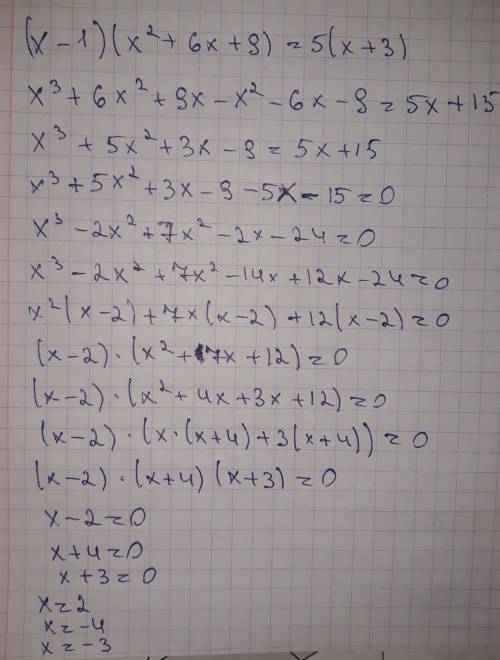 (x - 1)(x² + 6x + 9) = 5(x + 3)
x³ + 6x² + 9x - x² - 6x - 9 = 5x + 15
x³ + 5x² + 3x - 9 = 5x + 15
x³ + 5x² + 3x - 9 - 5x - 15 = 0
x³ - 2x² + 7x² - 2x - 24 = 0
x³ - 2x² + 7x² - 14x + 12x - 24 = 0
x²(x - 2) + 7x(x - 2) + 12(x - 2) = 0
(x - 2) · (x² + 7x + 12) = 0
(x - 2) · (x² + 4x + 3x + 12) = 0
(x - 2) · (x · (x + 4) + 3(x + 4)) = 0
(x - 2) · (x + 4) (x + 3) = 0
x - 2 = 0
x + 4 = 0
x + 3 = 0
x = 2
x = -4
x = -3